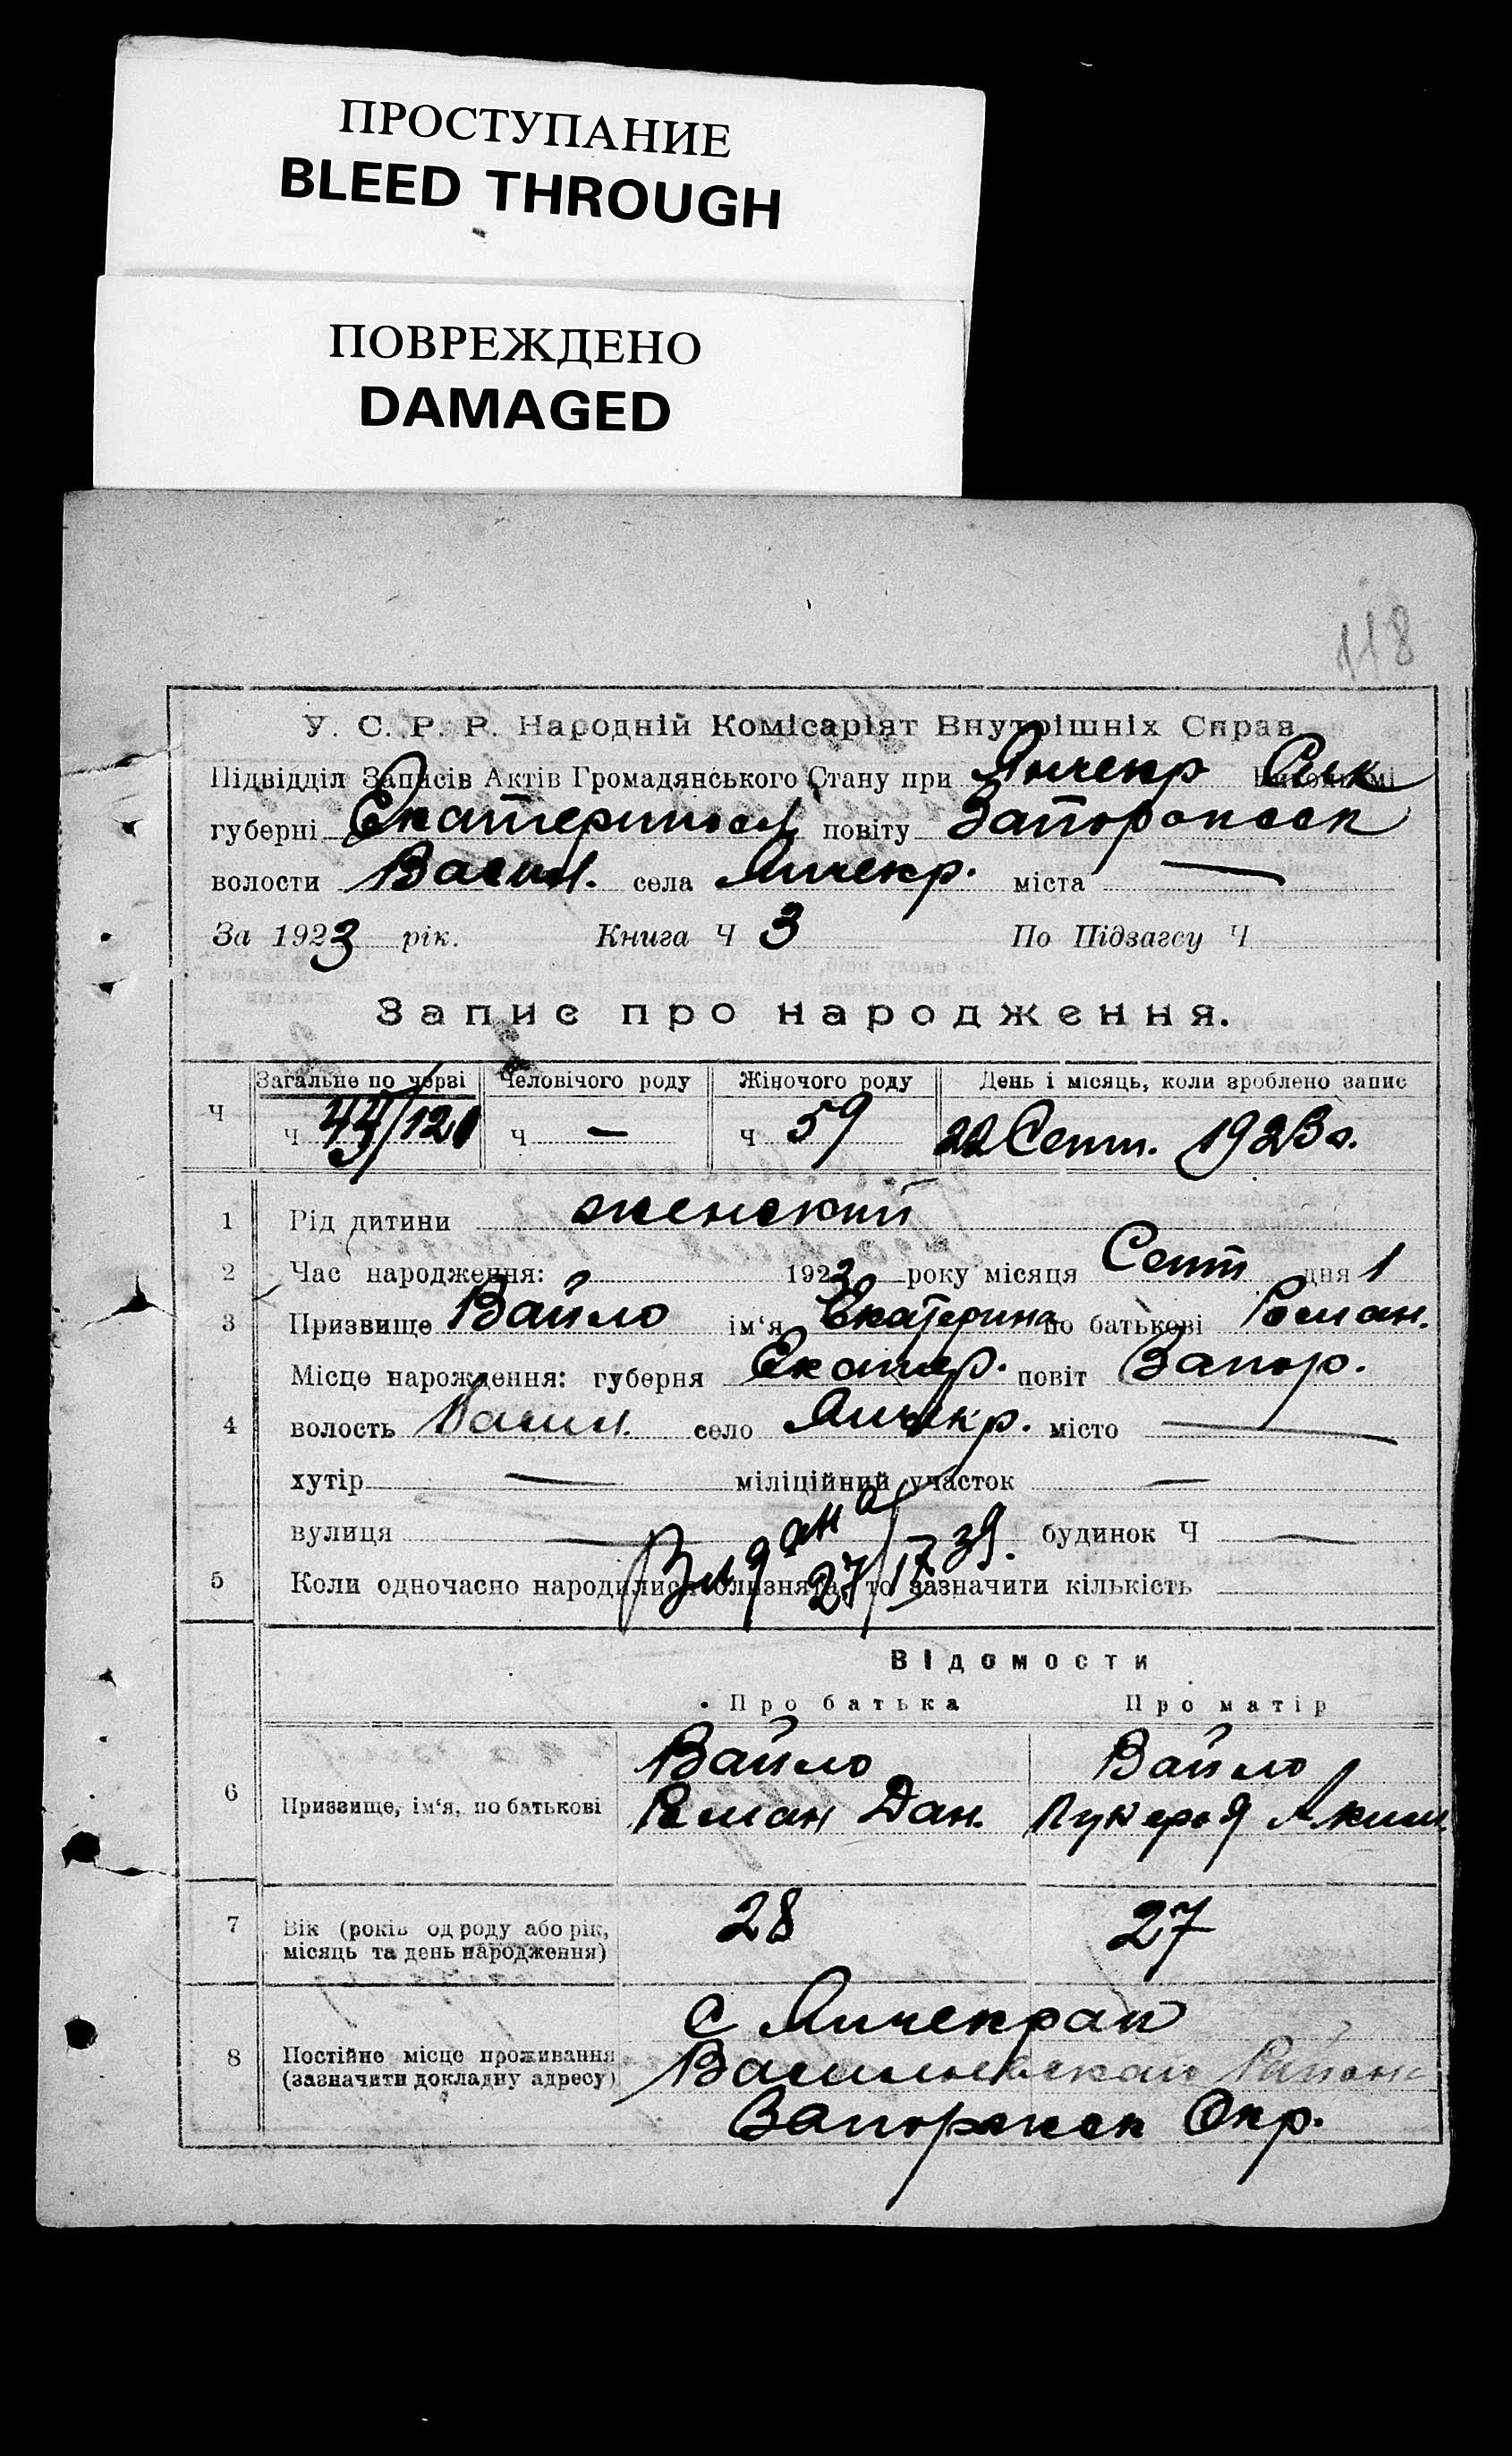 ПРОСТУПАНИЕ
BLEED THROUGH
ПОВРЕЖДЕНО
DAMAGED
118
У. С. Р. Р. Народній Комісаріят Внутрішніх Справ
Підвідділ Записів Актів Громадянського Стану при Янчекр Сск Виконкомі
губерні Екатериносл повіту Запорожск
волости Васил. села Янчекр. міста —
За 1923 рік. Книга Ч 3 По Підзагсу Ч
Запис про народження.
Загальне по черзі Человічого роду Жіночого роду День і місяць, коли зроблено запис
Ч Ч /120 Ч — Ч 59 22 Сент. 1923 г.
1 Рід дитини женский
2 Час народження: 1923 року місяця Сент дня 1
3 Призвище Вайло ім‘я Екатерина по батькові Роман.
Місце народження: губерня Екатер. повіт Запор.
4 волость Васил. село Янчекр. місто —
хутір — міліційний участок —
вулиця — будинок Ч —
Видана 27/IV 39.
5 Коли одночасно народилися близнята, то зазначити кількість
Відомости
Про батька Про матір
Вайло Вайло
6 Призвище, ім‘я, по батькові Роман Дан. Лукерья Аким.
7 Вік (років од роду або рік, 28 27
місяць та день народження)
с Янчекрак
8 Постійне місце проживання Васильевской Район
(зазначити докладну адресу)
Запорожск Окр.